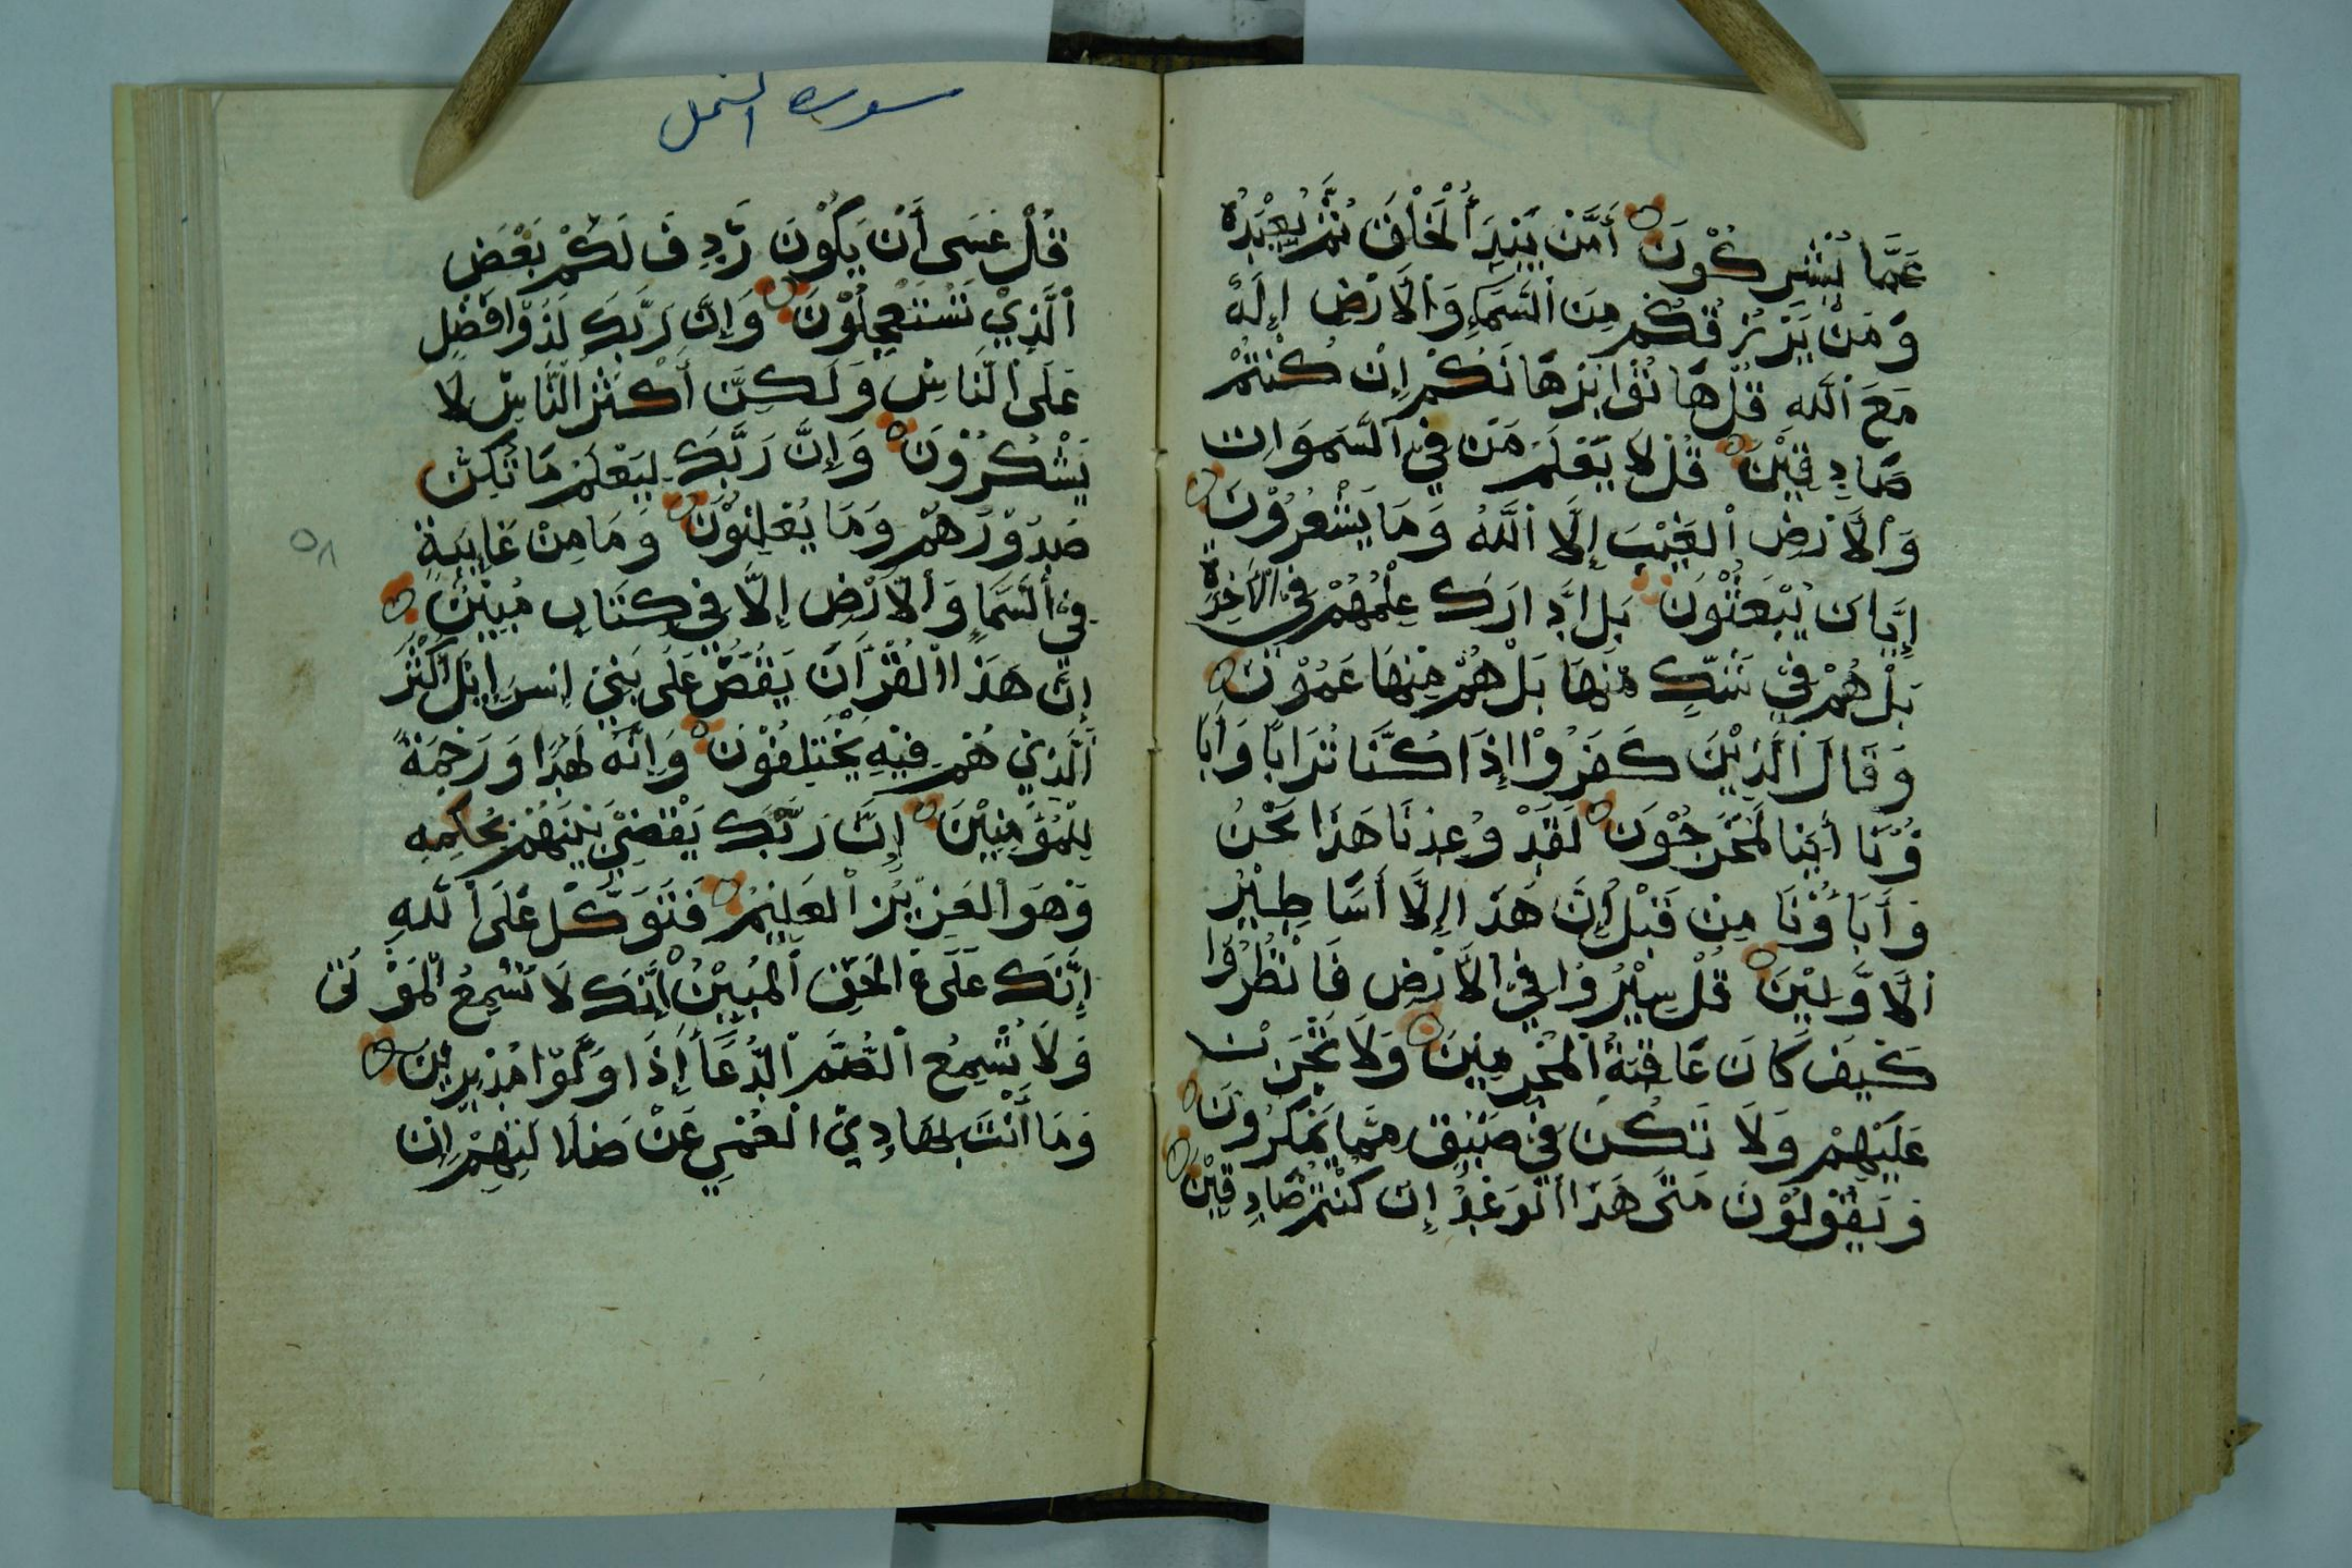 عَمَّا تُشْرِكُوْنَ أَمَّنْ يَبْدَؤُ ٱلْخَلْقَ ثُمَّ يُعِيْدُهُ
وَمَنْ يَرْزُقُكُمْ مِنَ ٱلسَّمَآءِ وَٱلْأَرْضِ اِلَهٌ
مَعَ ٱللَّهِ قُلْ هَاتُوْا بُرْهَانَكُمْ إِنْ كُنْتُمْ
صَادِقِيْنَ قُلْ لَا يَعْلَمُ مَنْ فِي ٱلسَّمَوَاتِ
وَٱلْأَرْضِ ٱلْغَيْبَ إِلَّا ٱللَّهُ وَمَا يَشْعُرُوْنَ
إِيَّانَ يُبْعَثُوْنَ بَلِ ادَّارَكَ عِلْمُهُمْ فِي الْآخِرَةِ
بَلْ هُمْ فِيْ شَكٍّ مِنْهَا بَلْ هُمْ مِنْهَا عَمُوْنَ
وَقَالَ ٱلَّذِيْنَ كَفَرُوْا إِذَا كُنَّا تُرَابًا وَابَا
ؤُنَا أَئِنَّا لَمُخْرَجُوْنَ لَقَدْ وُعِدْنَا هَذَا نَحْنُ
وَأَبَاؤُنَا مِنْ قَبْلُ إِنْ هَذَا إِلَّا أَسَاطِيْرُ
ٱلْأَوَّلِيْنَ قُلْ سِيْرُوْا فِي ٱلْأَرْضِ فَانْظُرُوْا
كَيْفَ كَانَ عَاقِبَةُ ٱلْمُجْرِمِيْنَ وَلَا تَحْزَنْ
عَلَيْهِمْ وَلَا تَكُنْ فِيْ ضَيْقٍ مِمَّا يَمْكُرُوْنَ
وَيَقُوْلُوْنَ مَتَى هَذَا ٱلْوَعْدُ إِنْ كُنْتُمْ صَادِقِيْنَ
سورة النمل
قُلْ عَسَى أَنْ يَكُوْنَ رَدِفَ لَكُمْ بَعْضَ
ٱلَّذِيْ تَسْتَعْجِلُوْنَ وَإِنَّ رَبَّكَ لَذُوْا فَضْلٍ
عَلَى ٱلنَّاسِ وَلَكِنَّ أَكْثَرَ ٱلنَّاسِ لَا
يَشْكُرُوْنَ وَإِنَّ رَبَّكَ لِيَعْلَمُ مَا تُكِنُّ
صُدُوْرُهُمْ وَمَا يُعْلِنُوْنَ وَمَا مِنْ غَايِبَةٍ
فِي ٱلسَّمَاءِ وَٱلْأَرْضِ إِلَّا فِيْ كِتَابٍ مُبِيْنٍ
إِنَّ هَذَا ٱلْقُرْآنَ يَقُصُّ عَلَى بَنِيْ إِسْرَائِيْلَ أَكْثَرَ
ٱلَّذِيْ هُمْ فِيْهِ يَخْتَلِفُوْنَ وَإِنَّهُ لَهُدًا وَرَحْمَةً
لِلْمُؤْمِنِيْنَ إِنَّ رَبَّكَ يَقْضِيْ بَيْنَهُمْ بِحُكْمِهِ
وَهُوَ ٱلْعَزِيْزُ ٱلْعَلِيْمُ فَتَوَكَّلْ عَلَى ٱللَّهِ
إِنَّكَ عَلَى ٱلْحَقِّ ٱلْمُبِيْنِ إِنَّكَ لَا تُسْمِعُ ٱلْمَوْتَى
وَلَا تُسْمِعُ ٱلصُّمَّ ٱلدُّعَاءَ إِذَا وَلَّوْا مُدْبِرِيْنَ
وَمَا أَنْتَ بِهَادِيْ ٱلْعُمْيِ عَنْ ضَلَالَتِهِمْ إِنْ
٥٨